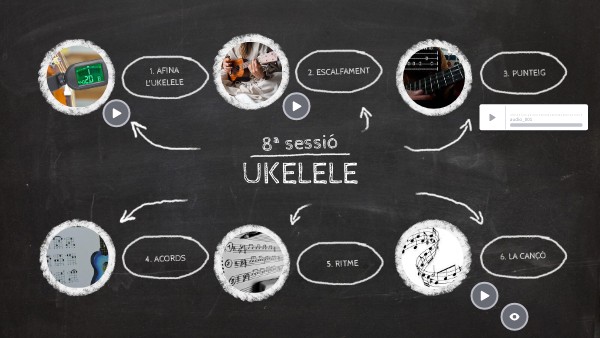 1. AFINA
L'UKELELE
2. ESCALFAMENT
3. PUNTEIG
8ª sessió
UKELELE
4. ACORDS
5. RITME
6. LA CANÇÓ